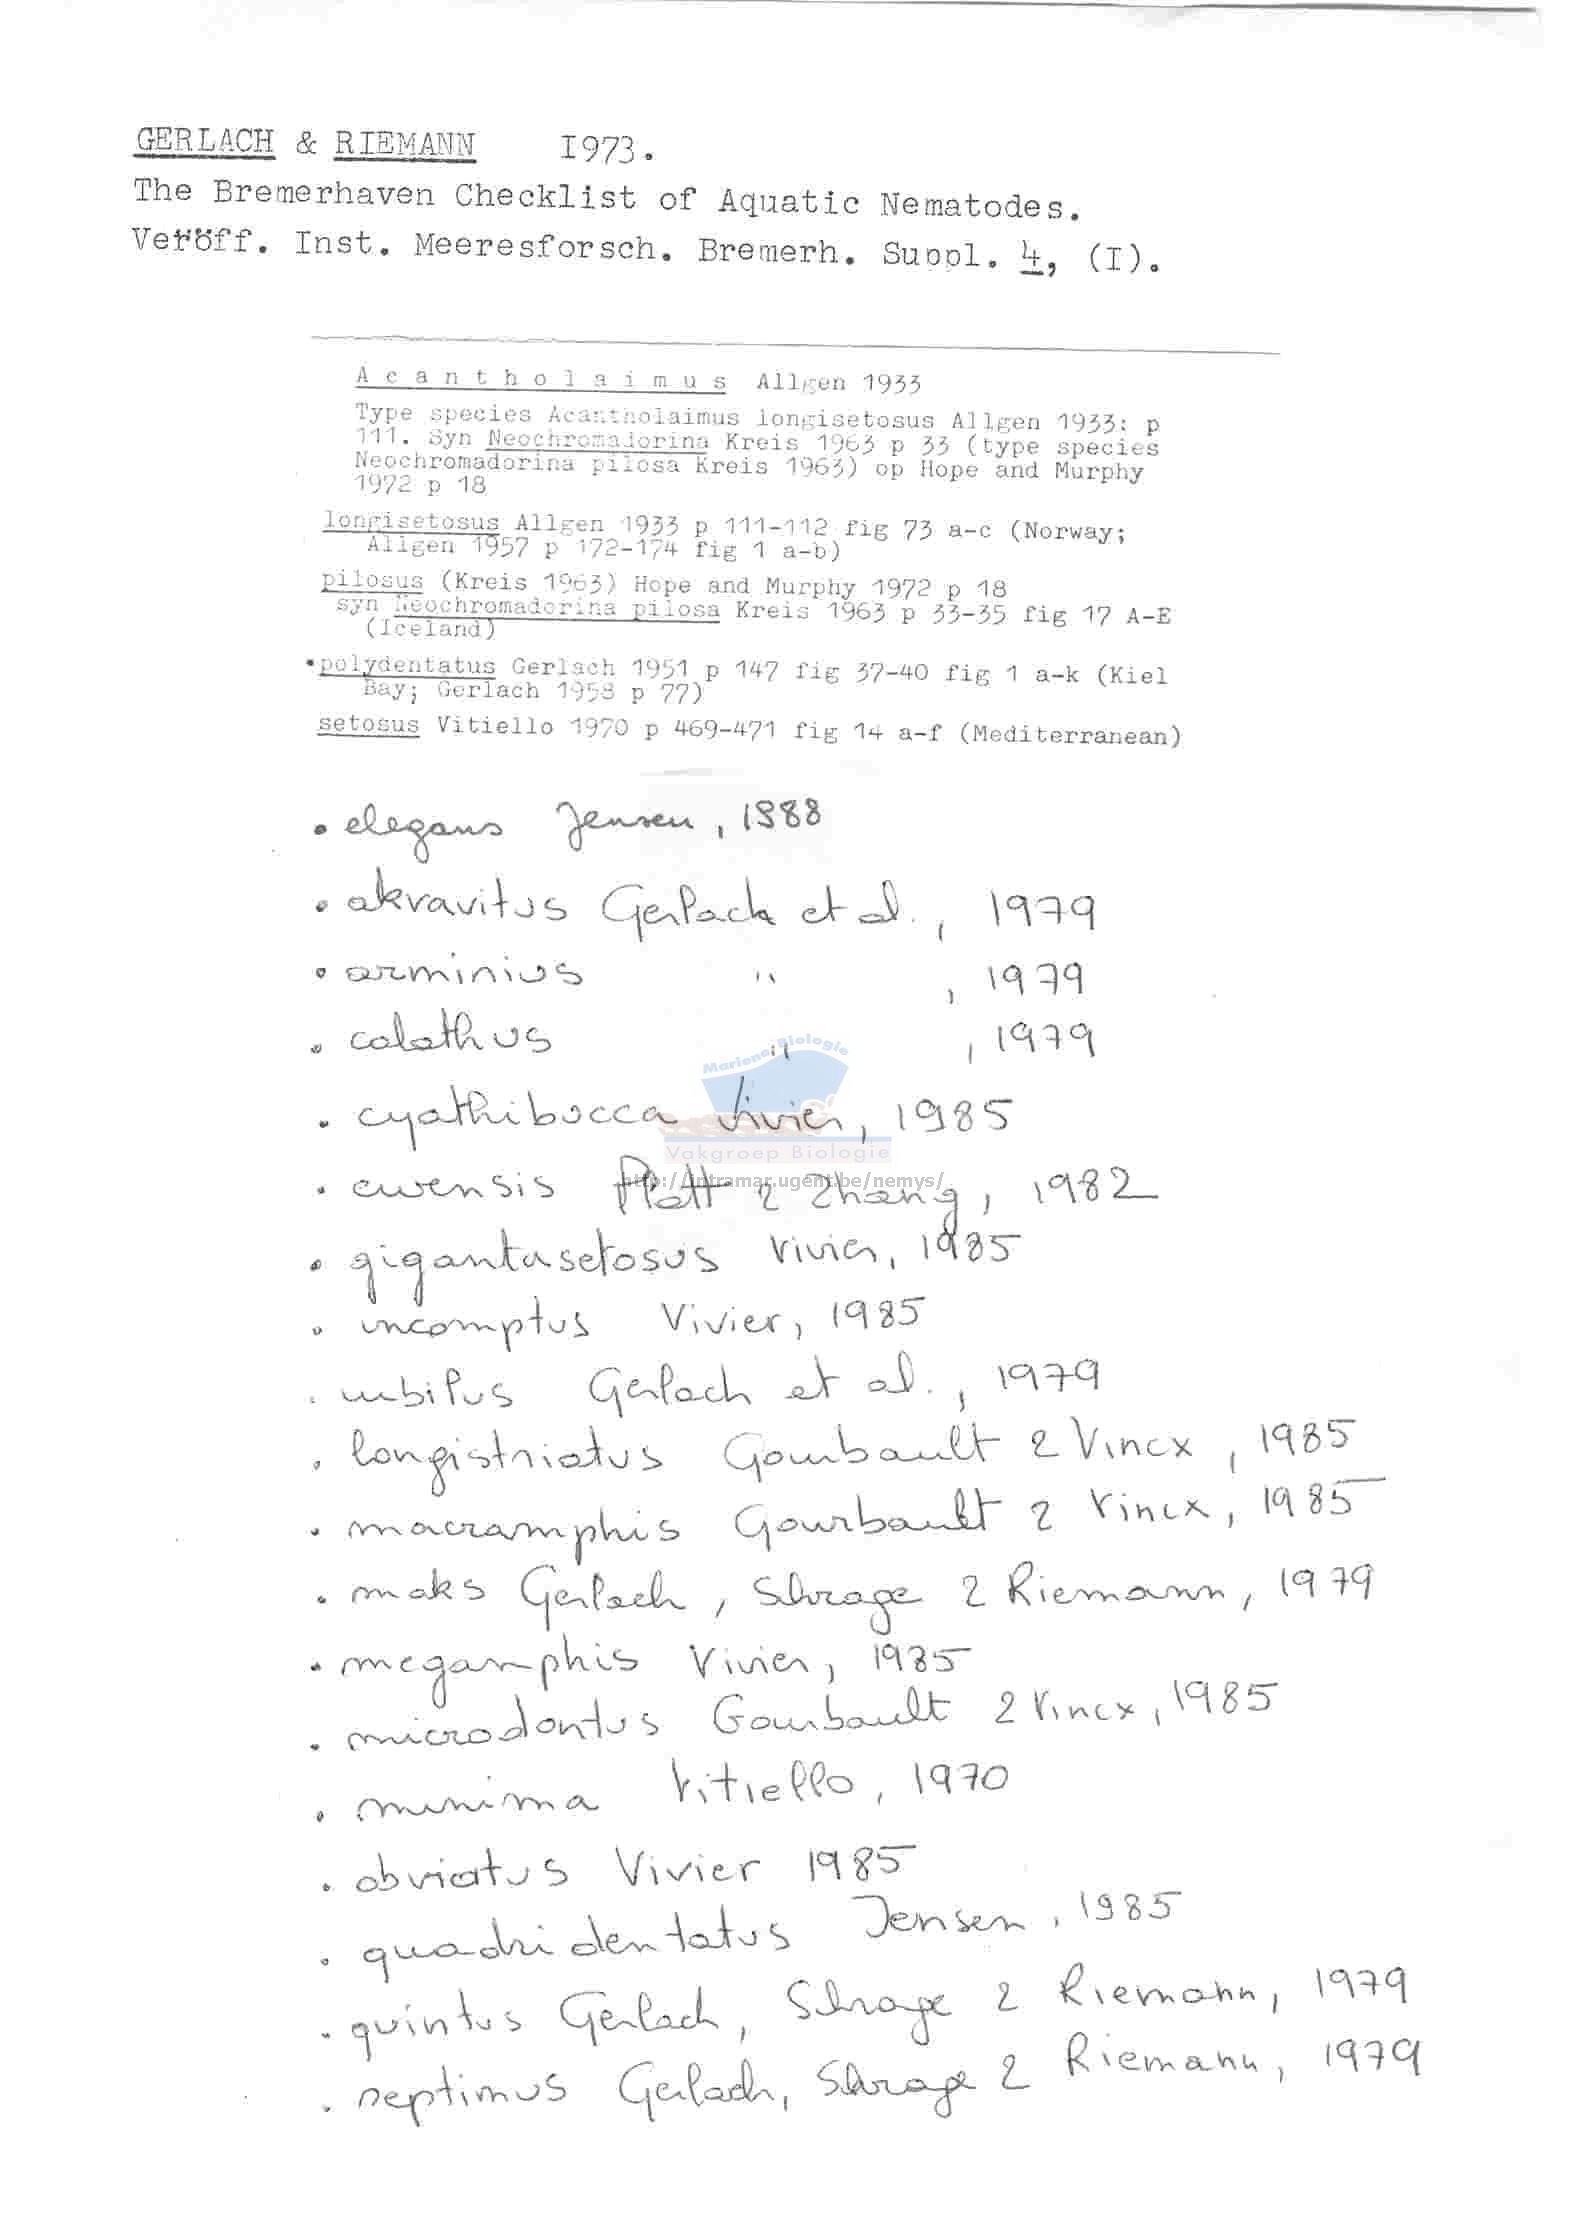 GERLACH & RIEMANN I973.
The Bremerhaven Checklist of Aquatic Nematodes.
Veröff. Inst. Meeresforsch. Bremerh. Suppl. 4, (I).
Acantholaimus Allgen 1933
Type species Acantholaimus longisetosus Allgen 1933: p
111. Syn Neochromadorina Kreis 1963 p 33 (type species
Neochromadorina pilosa Kreis 1963) op Hope and Murphy
1972 p 18
longisetosus Allgen 1933 p 111-112 fig 73 a-c (Norway;
Allgen 1957 p 172-174 fig 1 a-b)
pilosus (Kreis 1963) Hope and Murphy 1972 p 18
syn Neochromadorina pilosa Kreis 1963 p 33-35 fig 17 A-E
(Iceland)
•polydentatus Gerlach 1951 p 147 fig 37-40 fig 1 a-k (Kiel
Bay; Gerlach 1958 p 77)
setosus Vitiello 1970 p 469-471 fig 14 a-f (Mediterranean)
• elegans Jensen, 1988
• akravitus Gerlach et al., 1979
• arminius " , 1979
• calathus " , 1979
Mariene Biologie
• cyathibucca Vivier, 1985
Vakgroep Biologie
http://intramar.ugent.be/nemys/
• ewensis Platt & Zhang, 1982
• gigantasetosus Vivier, 1985
• incomptus Vivier, 1985
• iubilus Gerlach et al., 1979
• longistriatus Gourbault & Vincx, 1985
• macramphis Gourbault & Vincx, 1985
• maks Gerlach, Schrage & Riemann, 1979
• megamphis Vivier, 1985
• microdontus Gourbault & Vincx, 1985
• minima Vitiello, 1970
• obviatus Vivier 1985
• quadridentatus Jensen, 1985
• quintus Gerlach, Schrage & Riemann, 1979
• septimus Gerlach, Schrage & Riemann, 1979